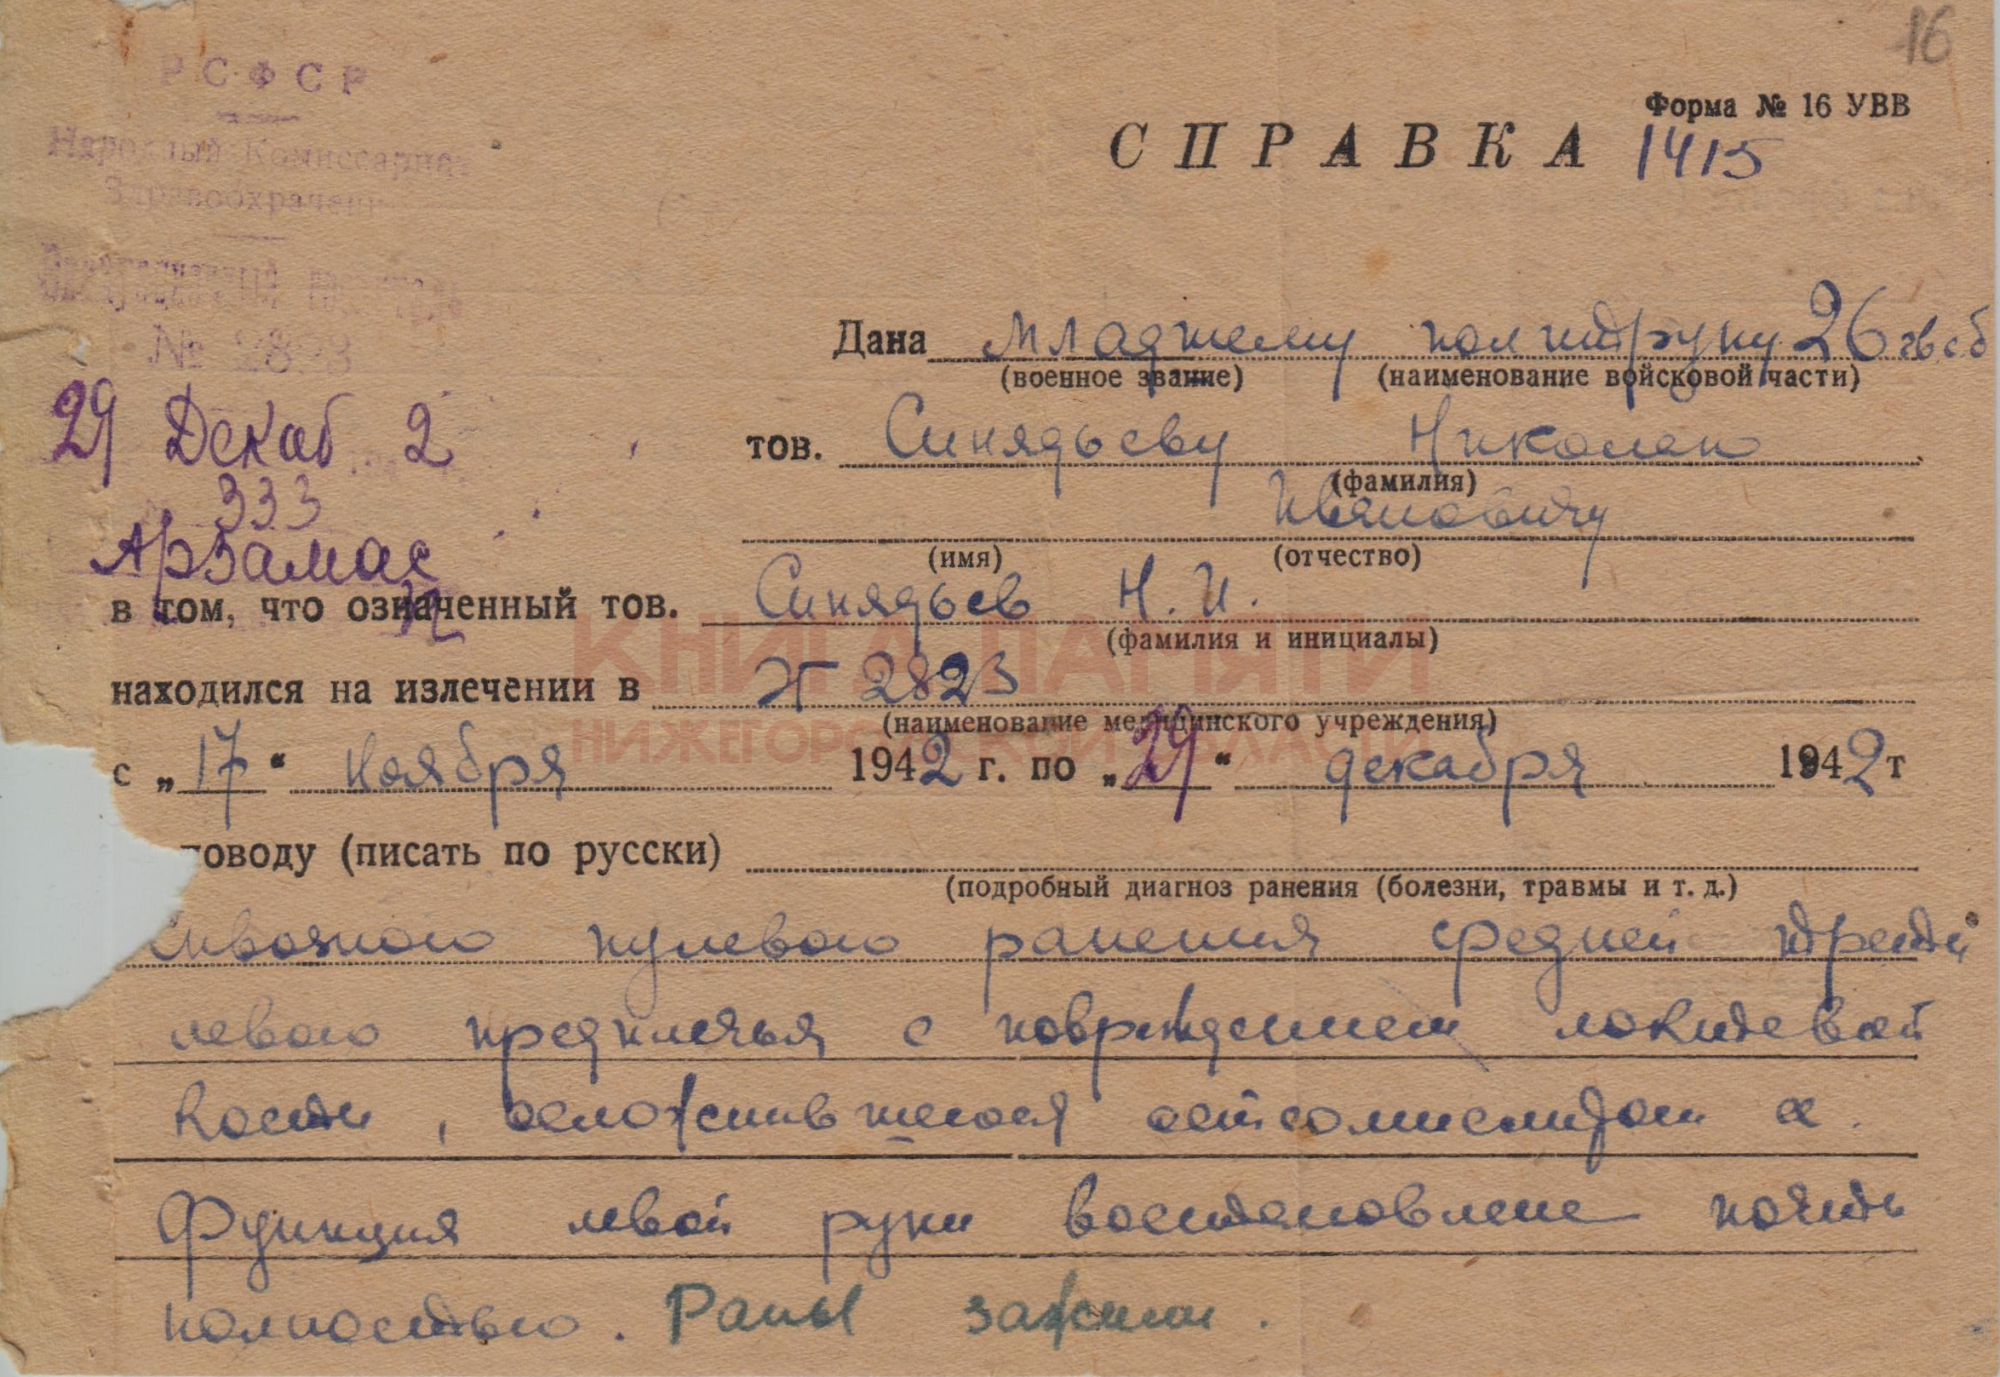 16
РСФСР
Форма № 16 УВВ
СПРАВКА 1415
Народный Комиссариат
Здравоохранен
Эвакуационный госпиталь
№ 2823
Дана младшему политруку 26 гв.сб
(военное звание) (наименование войсковой части)
29 Декаб 2
тов. Синядьеву Николаю
(фамилия)
333
Ивановичу
(имя) (отчество)
Арзамас
в том, что означенный тов. Синядьев Н. И.
(фамилия и инициалы)
КНИГА ПАМЯТИ
находился на излечении в ЭГ 2823
(наименование медицинского учреждения)
НИЖЕГОРОДСКОЙ ОБЛАСТИ
с „17“ ноября 1942 г. по „29“ декабря 1942 г
поводу (писать по русски)
(подробный диагноз ранения (болезни, травмы и т. д.)
Сквозного пулевого ранения средней трети
левого предплечья с повреждением локтевой
кости, осложнившегося остеомиелитом
Функция левой руки востановлене почти
полностью. Раны зажили.